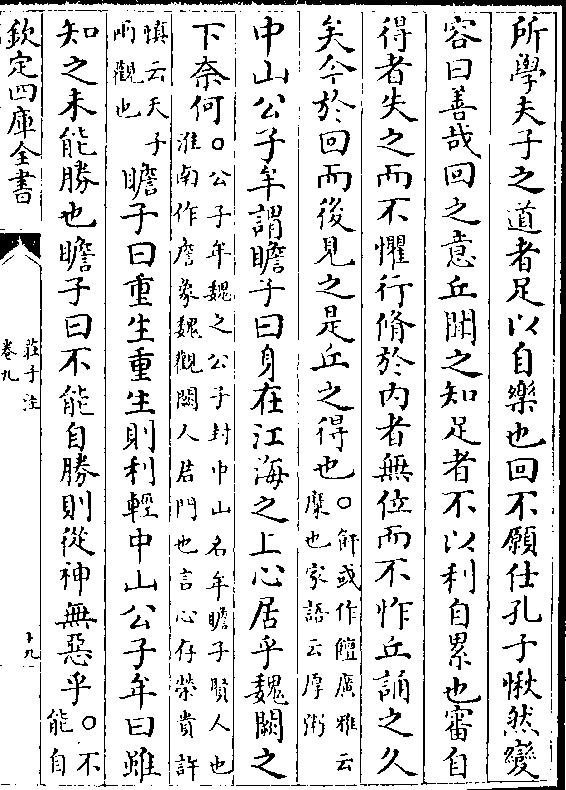 所學夫子之道者足以自樂也回不願仕孔子愀然變
容曰善哉回之意丘聞之知足者不以利自累也審自
得者失之而不懼行脩於内者無位而不怍丘誦之久
矣今於回而後見之是丘之得也○飦或作饘廣雅云
糜也家語云厚粥
中山公子牟謂瞻子曰身在江海之上心居乎魏闕之
下奈何○公子牟魏之公子封中山名牟瞻子賢人也
淮南作詹象魏觀闕人君門也言心存榮貴許
慎云天子
兩觀也
瞻子曰重生重生則利輕中山公子牟曰雖
知之未能勝也瞻子曰不能自勝則從神無惡乎○不
能自
欽定四庫全書
莊子注
卷九
十九